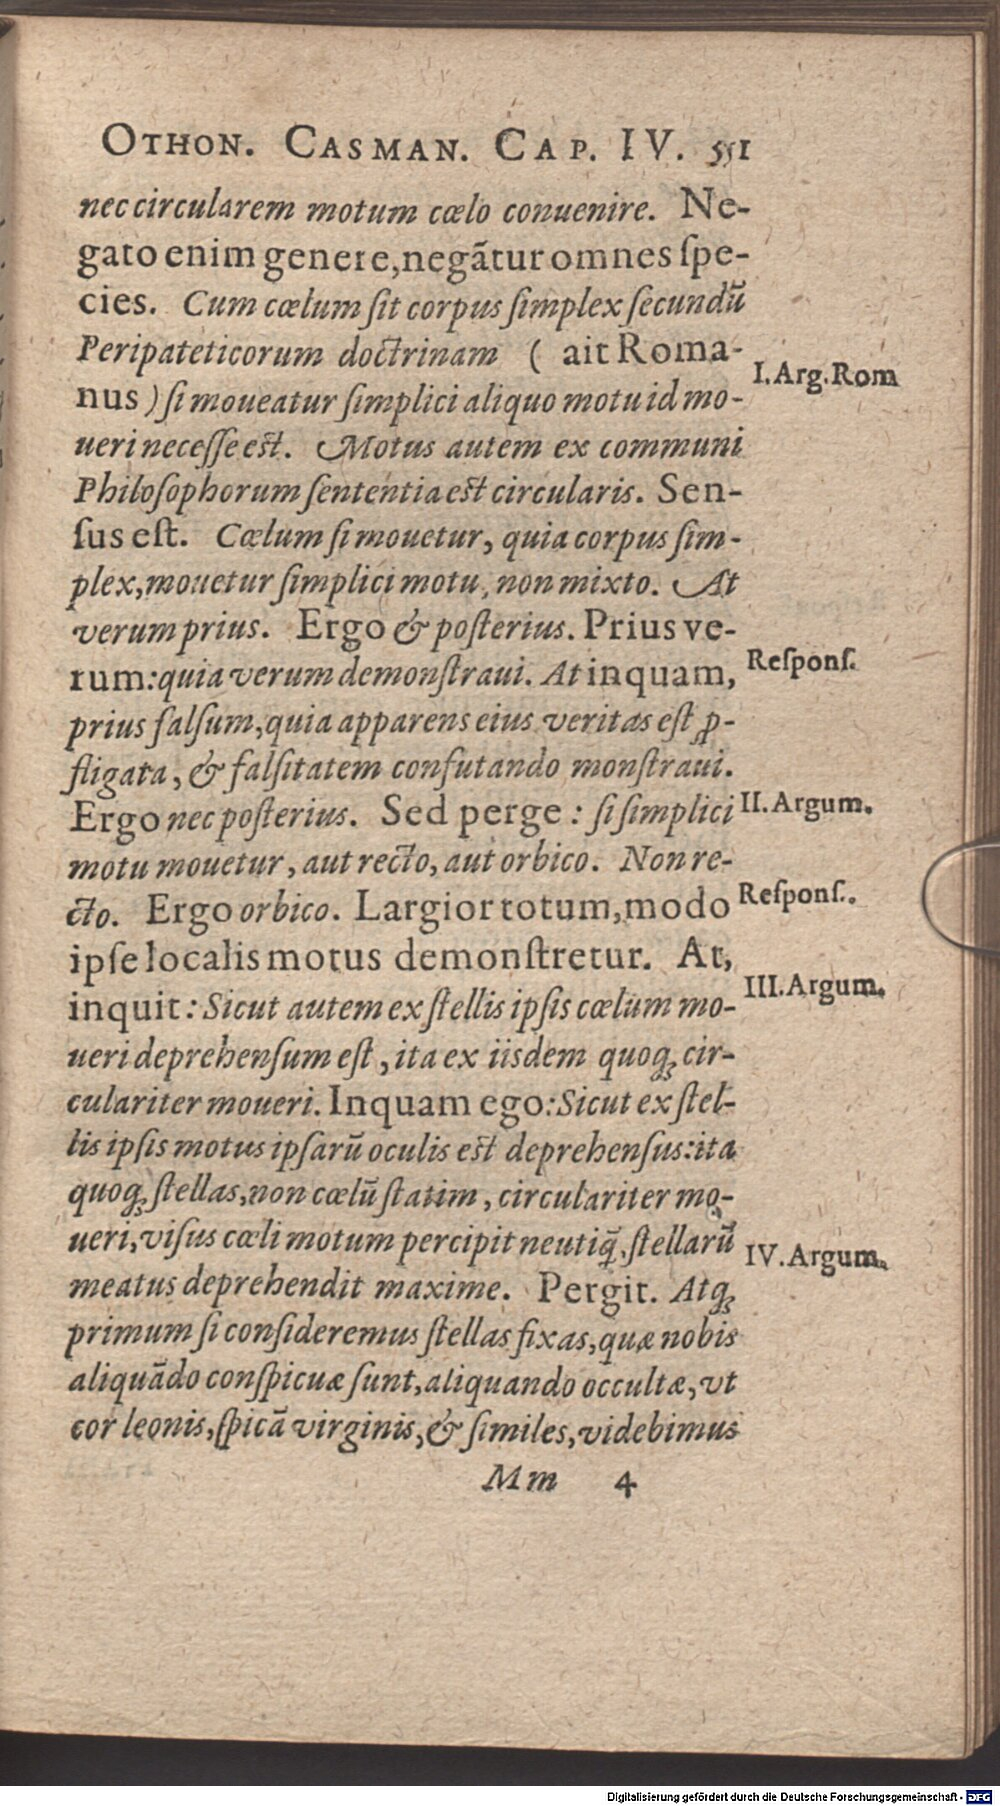 OTHON. CASMAN. CAP. IV. 551
nec circularem motum cœlo conuenire. Ne-
gato enim genere, negãtur omnes ſpe-
cies. Cum cœlum ſit corpus ſimplex ſecundũ
Peripateticorum doctrinam ( ait Roma-
nus ) ſi moueatur ſimplici aliquo motu id mo-
I. Arg. Rom
ueri neceſſe eſt. Motus autem ex communi
Philoſophorum ſententia eſt circularis. Sen-
ſus eſt. Cœlum ſi mouetur, quia corpus ſim-
plex, mouetur ſimplici motu, non mixto. At
verum prius. Ergo & poſterius. Prius ve-
rum: quia verum demonſtraui. At inquam,
Reſponſ.
prius falſum, quia apparens eius veritas eſt ꝓ-
fligata, & falſitatem confutando monſtraui.
Ergo nec poſterius. Sed perge : ſi ſimplici
II. Argum.
motu mouetur, aut recto, aut orbico. Non re-
cto. Ergo orbico. Largior totum, modo
Reſponſ.
ipſe localis motus demonſtretur. At,
inquit: Sicut autem ex ſtellis ipſis cœlum mo-
III. Argum.
ueri deprehenſum eſt, ita ex iisdem quoqꝫ cir-
culariter moueri. Inquam ego: Sicut ex ſtel-
lis ipſis motus ipſarũ oculis eſt deprehenſus: ita
quoqꝫ ſtellas, non cœlũ ſtatim, circulariter mo-
ueri, viſus cœli motum percipit neutiq̃, ſtellarũ
IV. Argum.
meatus deprehendit maxime. Pergit. Atqꝫ
primum ſi conſideremus ſtellas fixas, quæ nobis
aliquãdo conſpicuæ ſunt, aliquando occultæ, vt
cor leonis, ſpicã virginis, & ſimiles, videbimus
Mm 4
Digitalisierung gefördert durch die Deutsche Forschungsgemeinschaft - DFG